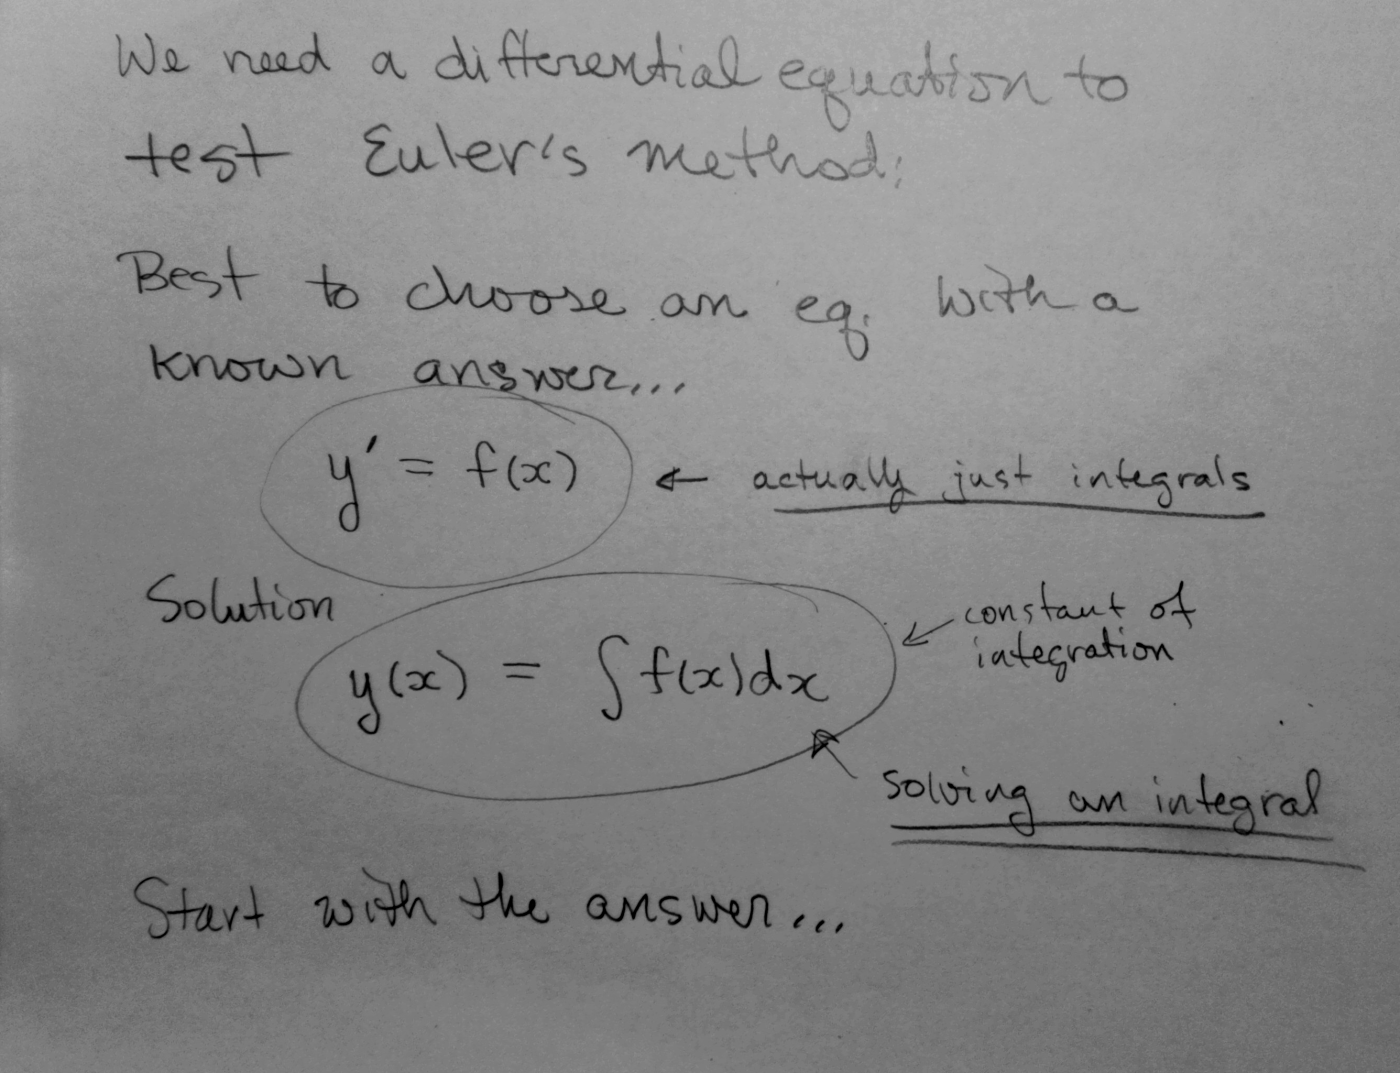 We need a differential equation to
test Euler's method:
Best to choose an eq. with a
known answer...
y' = f(x) ← actually just integrals
Solution
y(x) = ∫ f(x) dx
constant of
integration
solving an integral
Start with the answer...